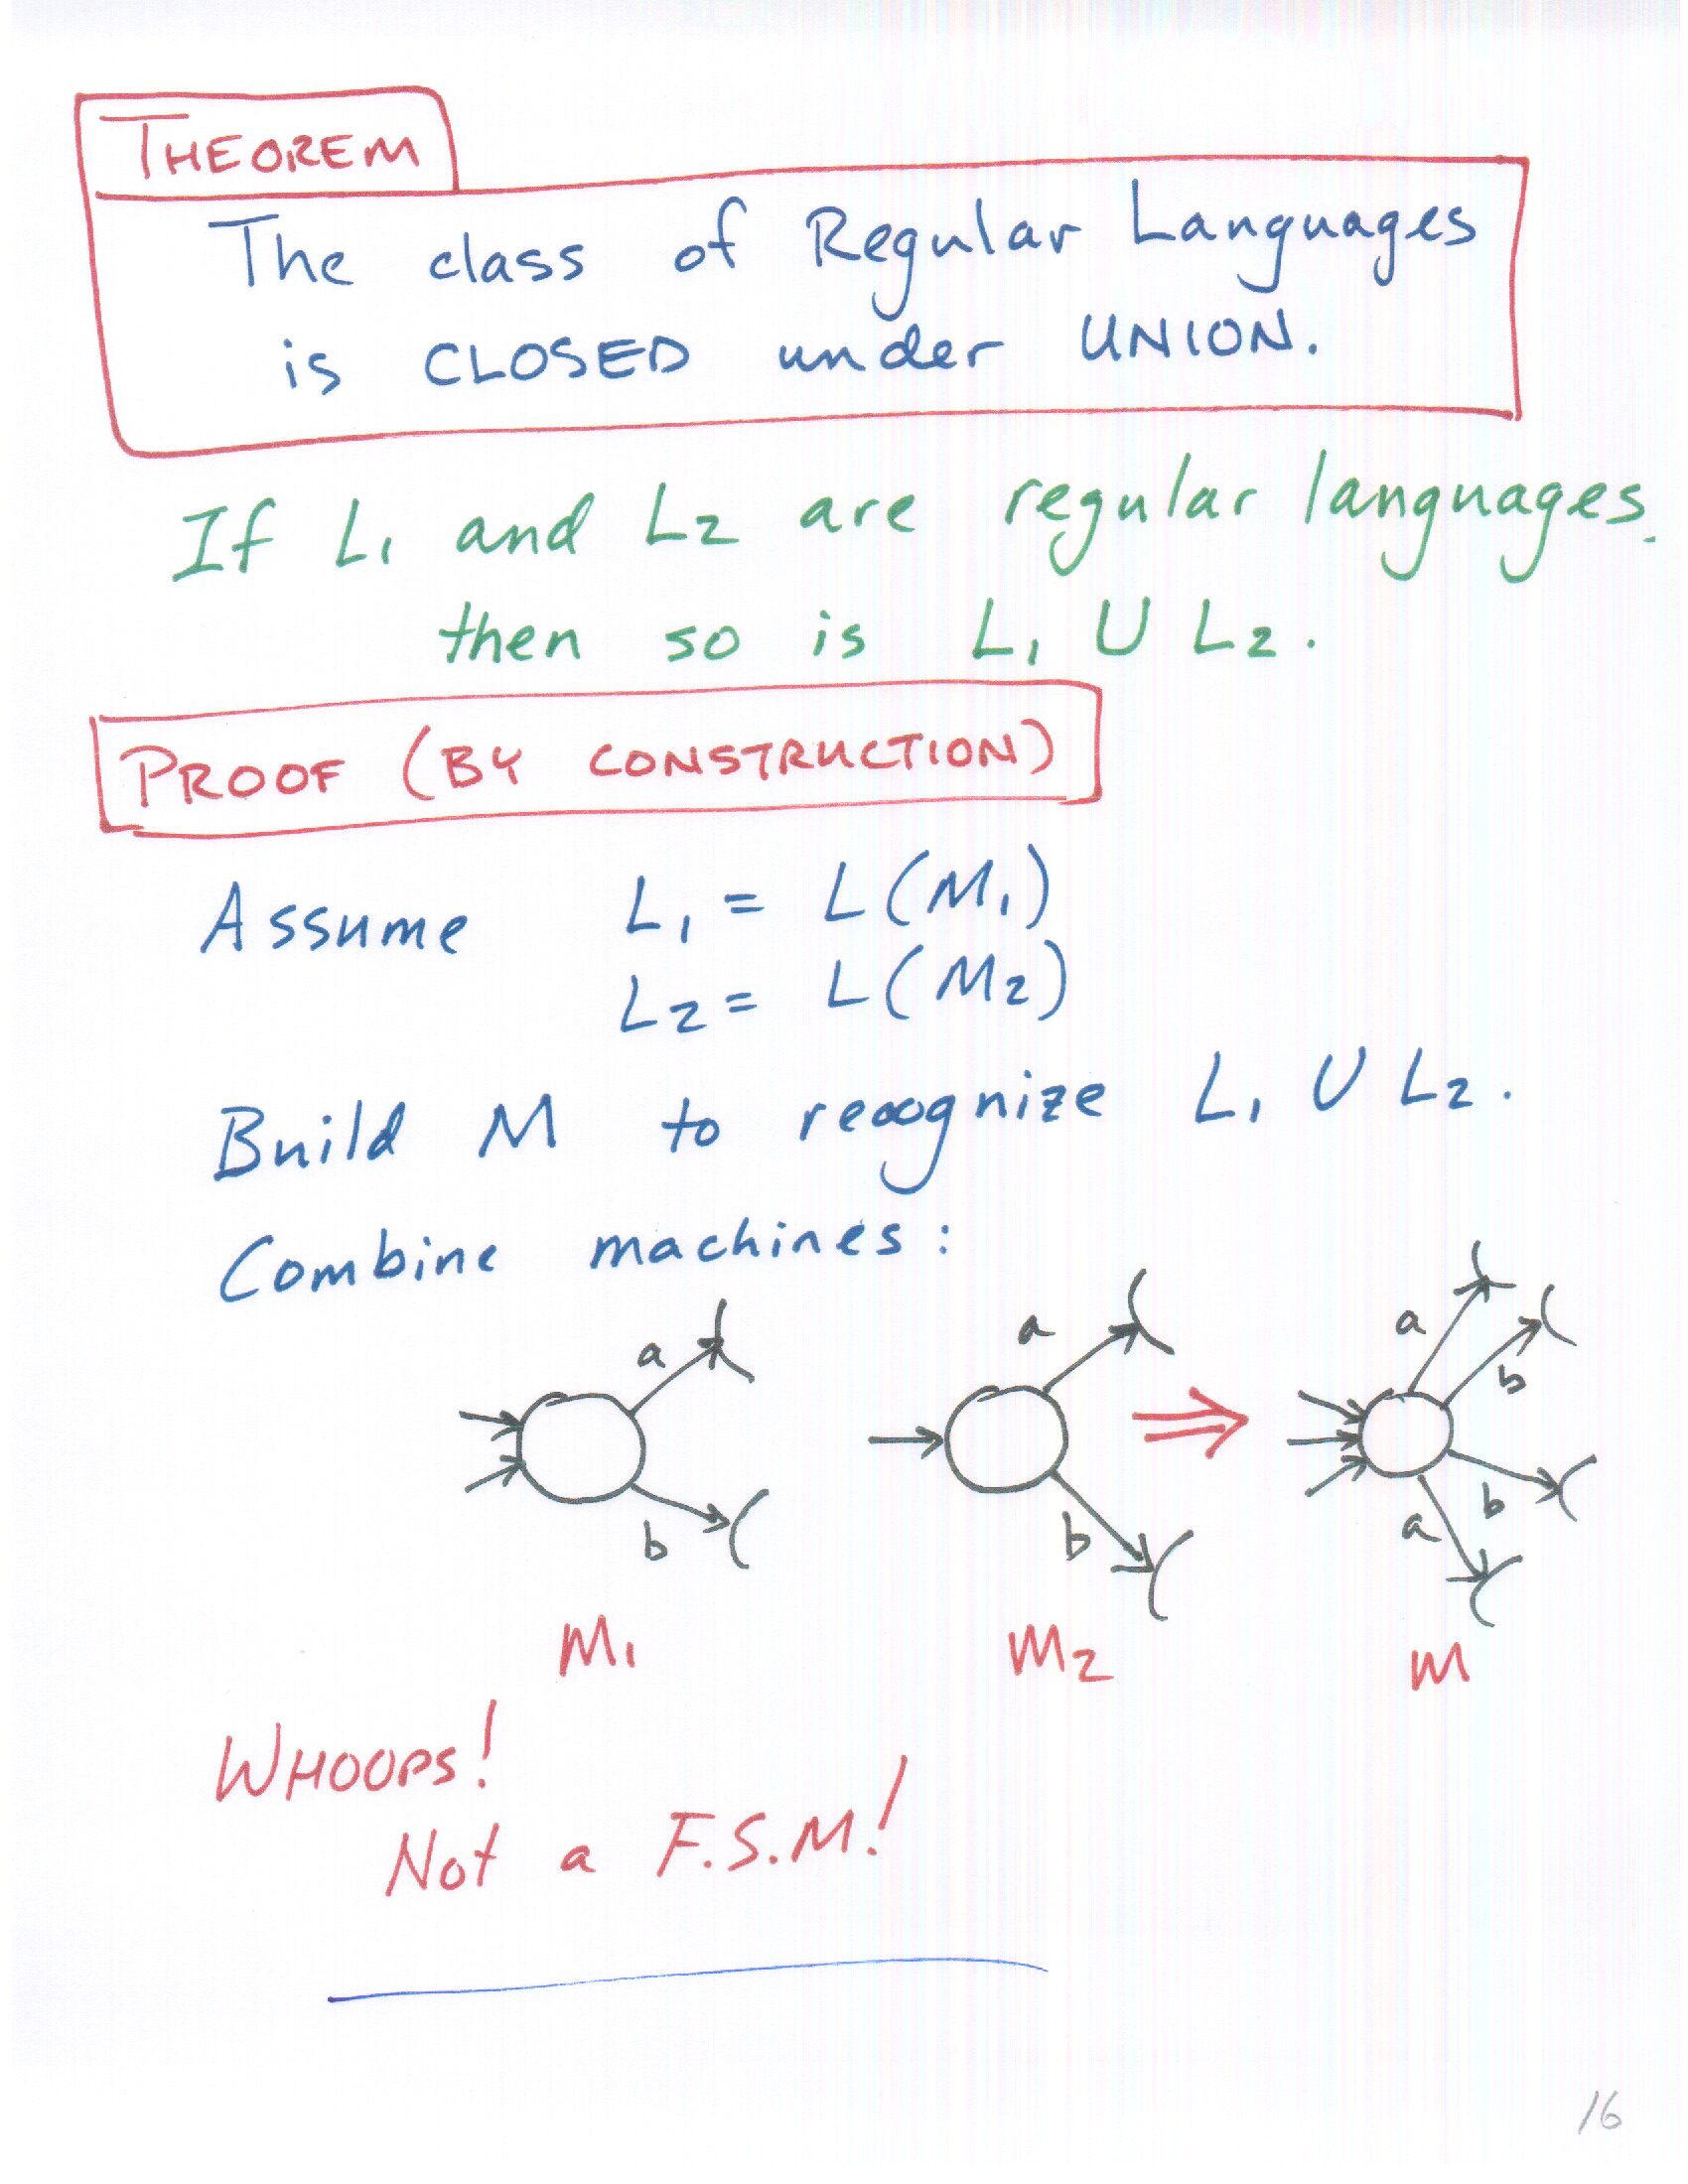 THEOREM
The class of Regular Languages
is CLOSED under UNION.
If L1 and L2 are regular languages.
then so is L1 U L2.
PROOF (BY CONSTRUCTION)
Assume L1 = L(M1)
L2 = L(M2)
Build M to recognize L1 U L2.
Combine machines:
a a a b
b b b a
M1 M2 M
WHOOPS!
Not a F.S.M.!
16